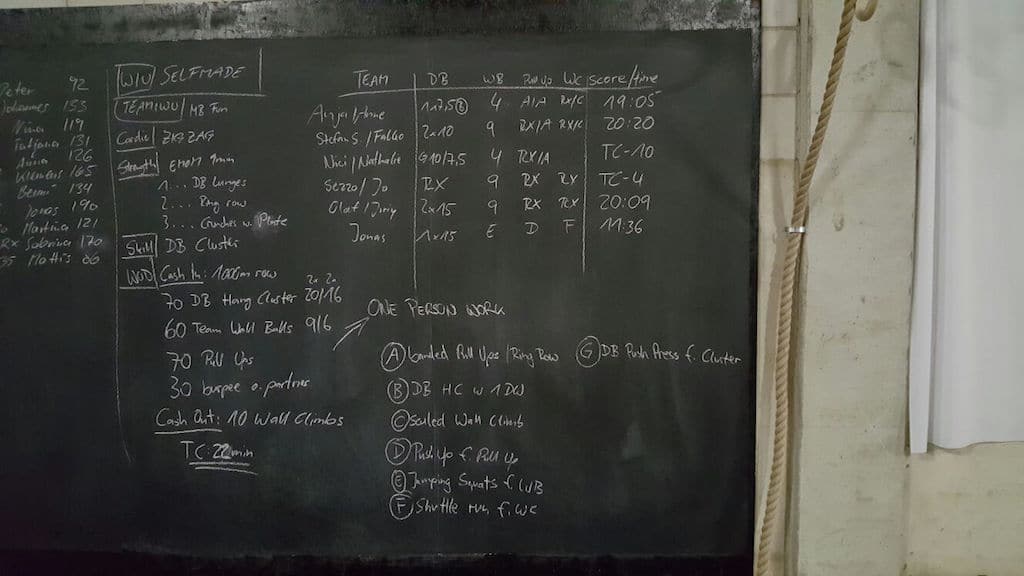 Peter 92
Johannes 153
Nina 119
Tatjana 131
Anna 126
Klemens 165
Benni 134
Jonas 190
Martina 121
Rx Sabrina 170
35 Mathis 86
W/U SELFMADE
TEAM WU MB Fun
Cardio ZIG ZAG
Strength EMOM 9min
1... DB Lunges
2... Ring row
3... Crunches w. Plate
Skill DB Cluster
WOD Cash In: 1000m row
2x 2x
70 DB Hang Cluster 20/16
60 Team Wall Balls 9/6
70 Pull Ups
30 burpee o. partner
Cash Out: 10 Wall Climbs
TC: 22min
TEAM DB WB Pull Up WC score/time
Anja/ 1x7,5 B 4 A/A RX/C 19:05
Stefan S./Falko 2x10 9 RX/A RX/C 20:20
Nici/Nathalie G10/7,5 4 RX/A TC-10
Sezzo/Jo RX 9 RX RX TC-4
Olaf/ 2x15 9 RX RX 20:09
Jonas 1x15 E D F 11:36
ONE PERSON WORK
A banded Pull Ups/Ring Row
B DB HC w 1 DB
C scaled Wall Climb
D Push Up f. Pull Up
E Jumping Squats f. WB
F Shuttle run f. WC
G DB Push Press f. Cluster